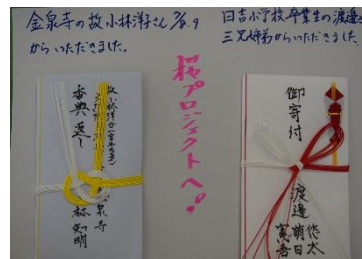 金泉寺の故小林洋子さん
からいただきました。
日吉小学校卒業生の渡邊
三兄姉弟からいただきました
桜プロジェクトへ!
香典返し
金泉寺
小林知明
御寄付
渡邊
悠太
萌日
寛吾